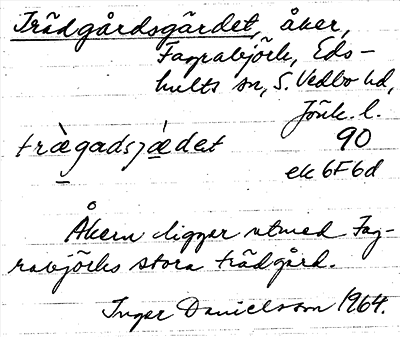 Trädgårdsgärdet, åker,
Fagrabjörk, Eds-
hults sn, S. Vedbo hd,
Jönk. l.
træ̀gadsjæ̀det 90
ek 6F6d
Åkern ligger utmed Fag-
rabjörks stora trädgård.
Inger Danielsson 1964.